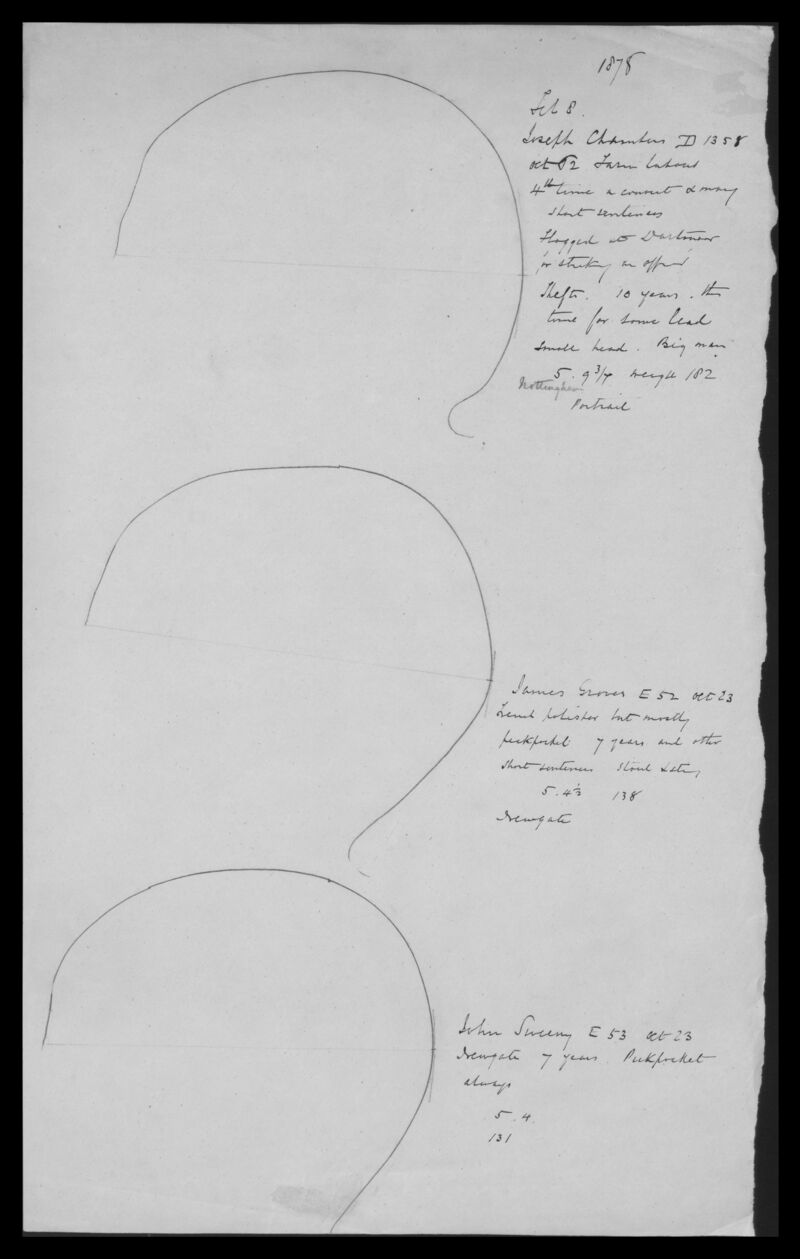 1878
Feb 8.
Joseph Chambers D 1358
aet 62 Farm labour
4th time a convict & many
short sentences
Flogged at Dartmoor
for striking an officer
Theft. 10 years. this
time for some lead
Small head. Big man
5. 9 3/4 weight 182
Nottingham
Portrait
James Grover E 52 aet 23
French polisher but mostly
pickpocket 7 years and other
short sentences
5. 4½ 138
Newgate
John Sweeny E 53 aet 23
Newgate 7 years. Pickpocket
always
5. 4.
131